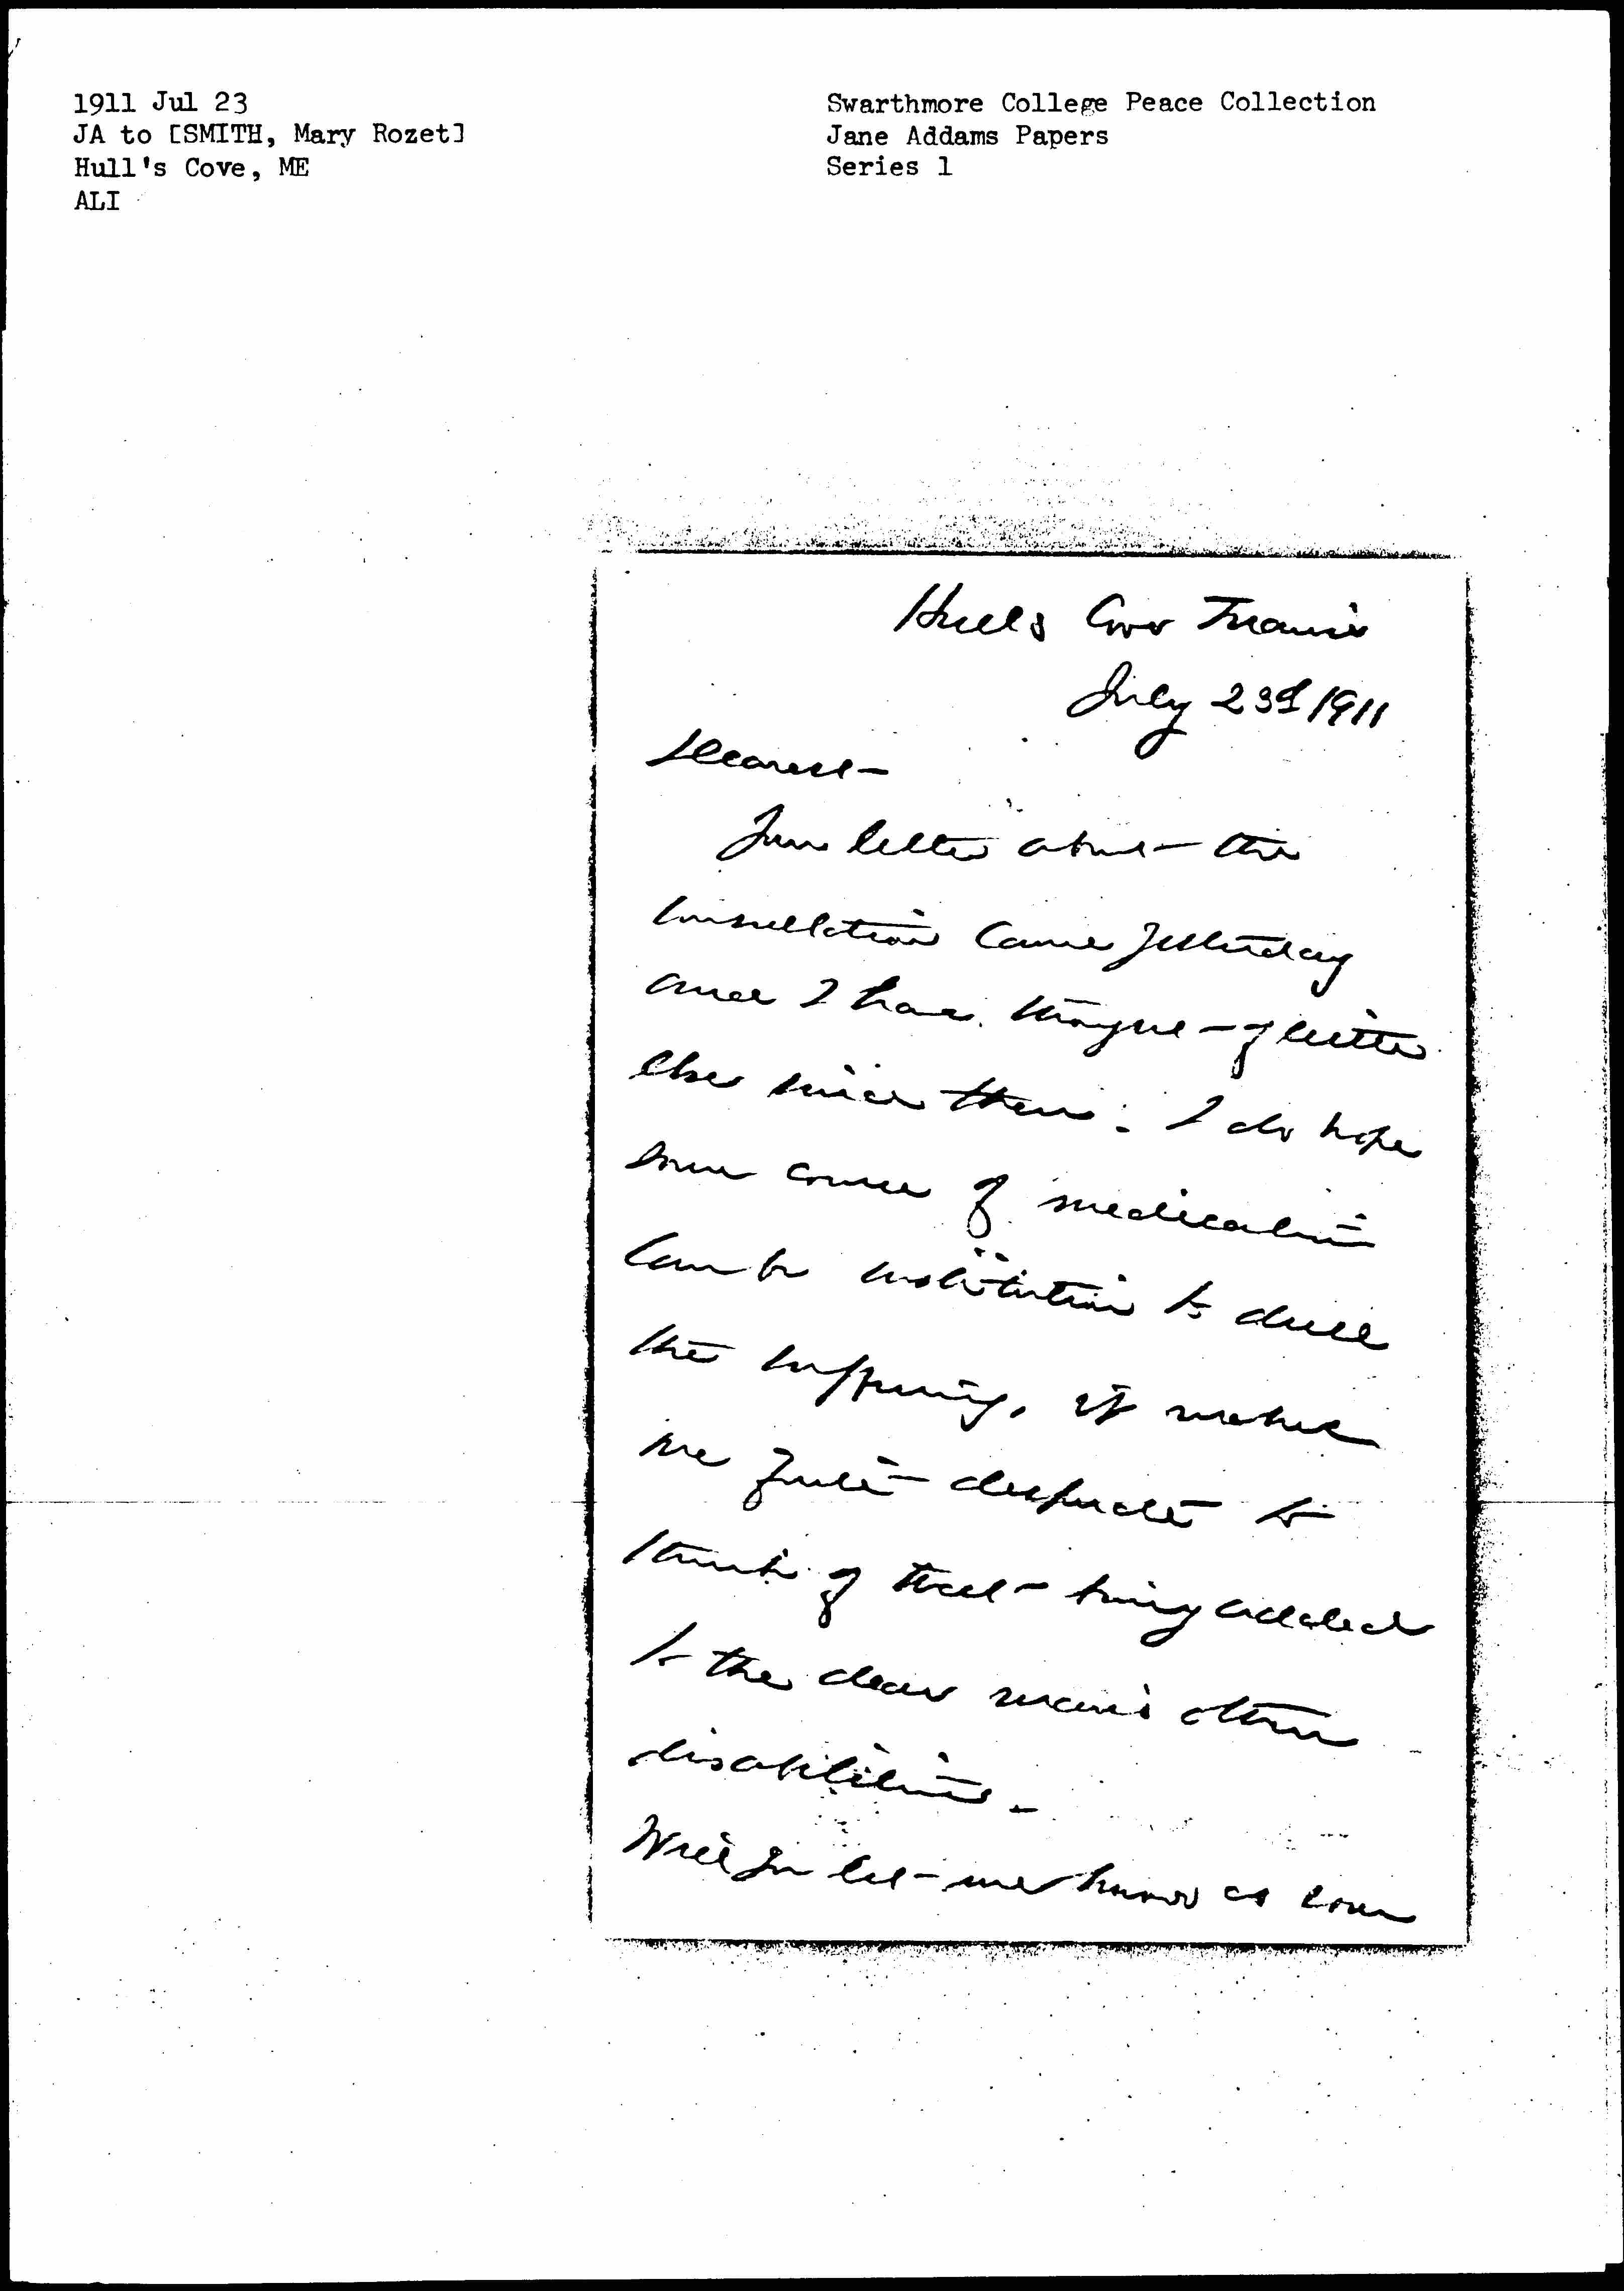 1911 Jul 23
JA to [SMITH, Mary Rozet]
Hull's Cove, ME
ALI
Swarthmore College Peace Collection
Jane Addams Papers
Series 1
Hulls Cove Maine
July 23d 1911
Dearest –
Your letter about the
consultation came yesterday
and I have thought of little
else since then. I do hope
some course of medication
can be institution to dull
the suffering, it makes
me quite desperate to
think of that being added
to the dear man's other
disabilities.
Will you let me know as soon